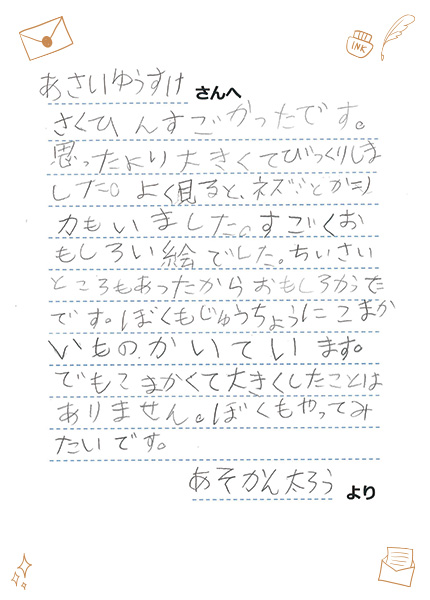 INK
あさいゆうすけ さんへ
さくひんすごかったです。
思ったより大きくてびっくりしま
した。よく見ると、ネズミとか
カもいました。すごくお
もしろい絵でした。ちいさい
ところもあったからおもしろかった
です。ぼくもじゆうちょうにこまか
いものかいています。
でもこまかくて大きくしたことは
ありません。ぼくもやってみ
たいです。
あそかん太ろう より